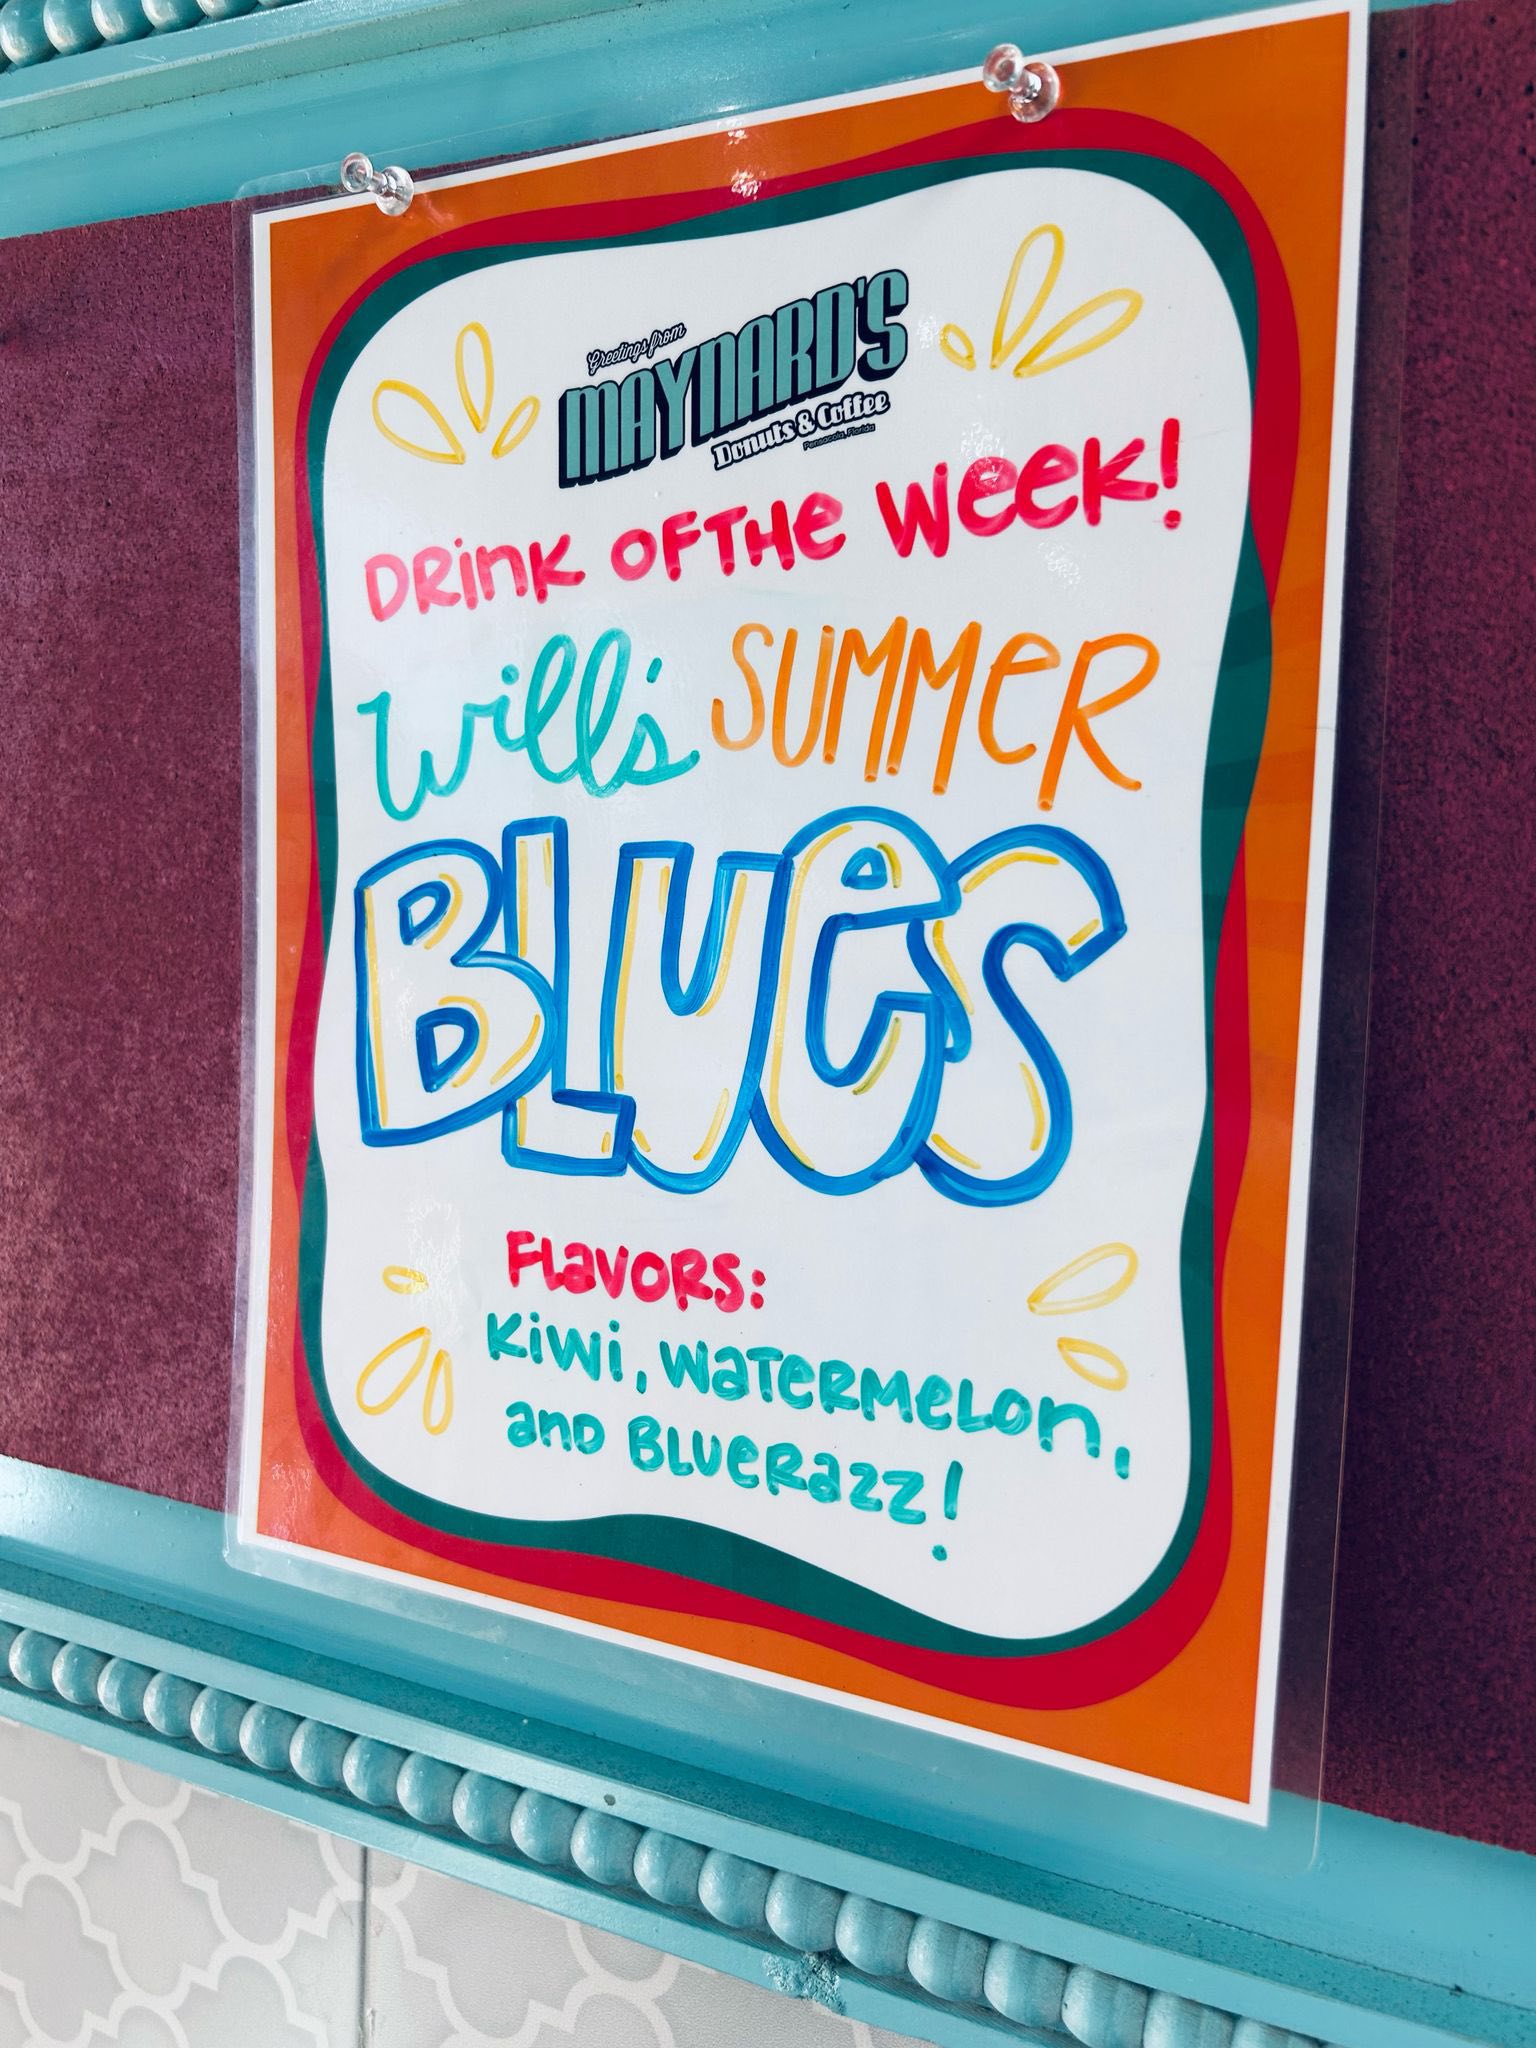 Greetings from
MAYNARD'S
Donuts & Coffee
Pensacola, Florida
DRinK OF THe WeeK!
Will's SUMMeR
BLUeS
FLavORS:
Kiwi, WaTeRMeLon,
anD BLUeRazz!